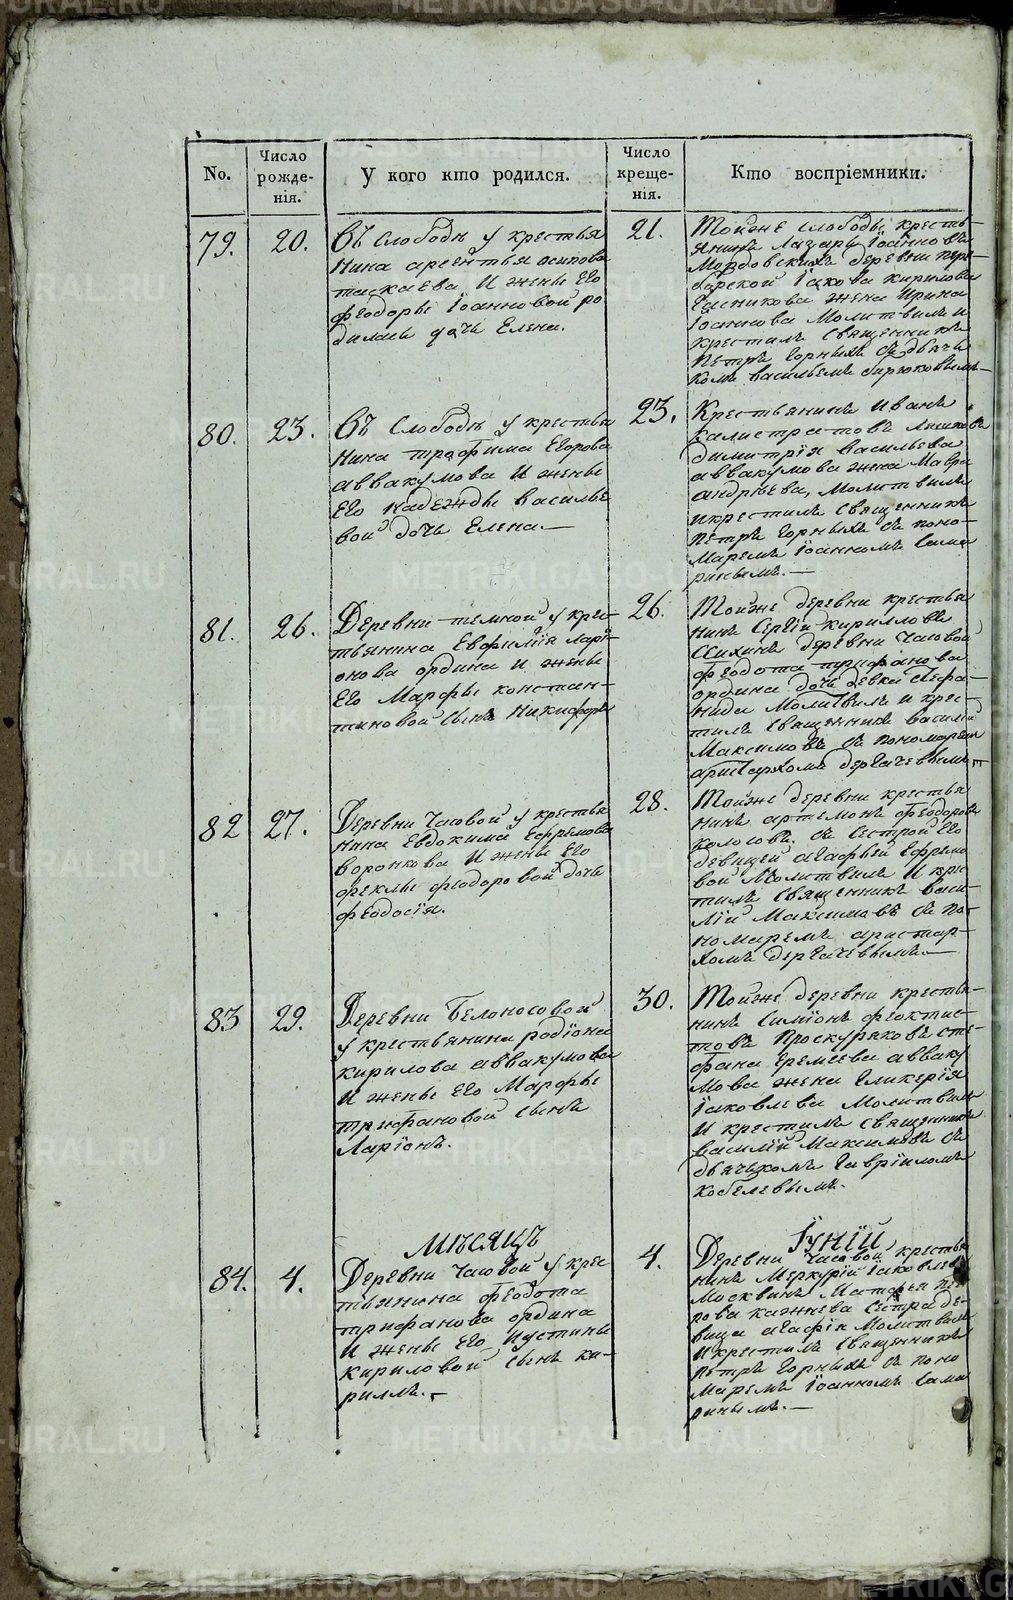 No.
Число рожде-нія.
У кого кто родился.
Число креще-нія.
Кто воспріемники.
79.
20.
Въ Слободѣ у крестья
нина арсентья осипова
таскаева И жены Его
феодоры Іоанновой ро
дилась дочь Елена.
21.
Тойже слободы кресть-
янинъ Лазарь Іоанновъ
Мордовскихъ деревни
Іакова кирилова
жена Ирина
Іоаннова Молитвилъ и
крестилъ Священникъ
Петръ Горныхъ съ дьяч
комъ васильемъ бирюковымъ—
80.
23.
Въ Слободѣ у крестья
нина трофима Егорова
аввакумова И жены
Его надежды василье
вой дочь Елена.—
23.
Крестьянинъ иванъ
калистратовъ
димитрія васильева
аввакумова жена Мавра
андрѣева, Молитвилъ
икрестилъ Священникъ
Петръ Горныхъ съ поно-
маремъ Іоанномъ Сама
ринымъ.—
81.
26.
Деревни темной у крес-
тьянина Евфимія Ларі-
онова ордина И жены
Его Марфы констан-
тиновой Сынъ Никифоръ
26.
Тойже деревни крестья
нинъ Сергій кирилловъ
деревни Часовой
феодота трифанова
ордина дочь девка Стефа-
нида Молитвилъ и крес-
тилъ Священникъ василій
Максимовъ съ пономаремъ
аристархомъ дергачевымъ
82
27.
Деревни Часовой у крестья
нина Евдокима Ефремова
воронкова И жены Его
феклы феодоровой дочь
феодосія.
28.
Тойже деревни крестья
нинъ артемонъ феодоровъ
колосовъ. съ Сестрой Его
девицей агафьей Ефремо
вой Молитвилъ И крес
тилъ Священникъ васи-
лій Максимовъ съ по-
номаремъ аристар-
хомъ дергачевымъ.—
83
29.
Деревни Белоносовой
у крестьянина родіона
кирилова аввакумова
И жены Его Марфы
трифановой Сынъ
Ларіонъ.
30.
Тойже деревни крестья-
нинъ Симіонъ феоктис-
товъ Проскуряковъ сте-
фана Еремеева авваку
мова жена Гликерія
Іаковлева Молитвилъ
И крестилъ Священникъ
василій Максимовъ съ
дьячькомъ Гавріиломъ
кобелевымъ.
МѢСЯЦЪ
Іуній
84.
4.
Деревни Часовой у крес
тьянина феодота
трифанова ордина
И жены Его Иустины
Кириловой Сынъ ки-
риллъ.—
4.
Деревни Часовой крестья
нинъ Меркурій Іаковлевъ
Москвинъ Матфея
Сестра де-
вица агафія Молитвилъ
Икрестилъ Священникъ
Петръ Горныхъ съ поно
маремъ Іоанномъ Сама
ринымъ.—
METRIKI.GASO-URAL.RU